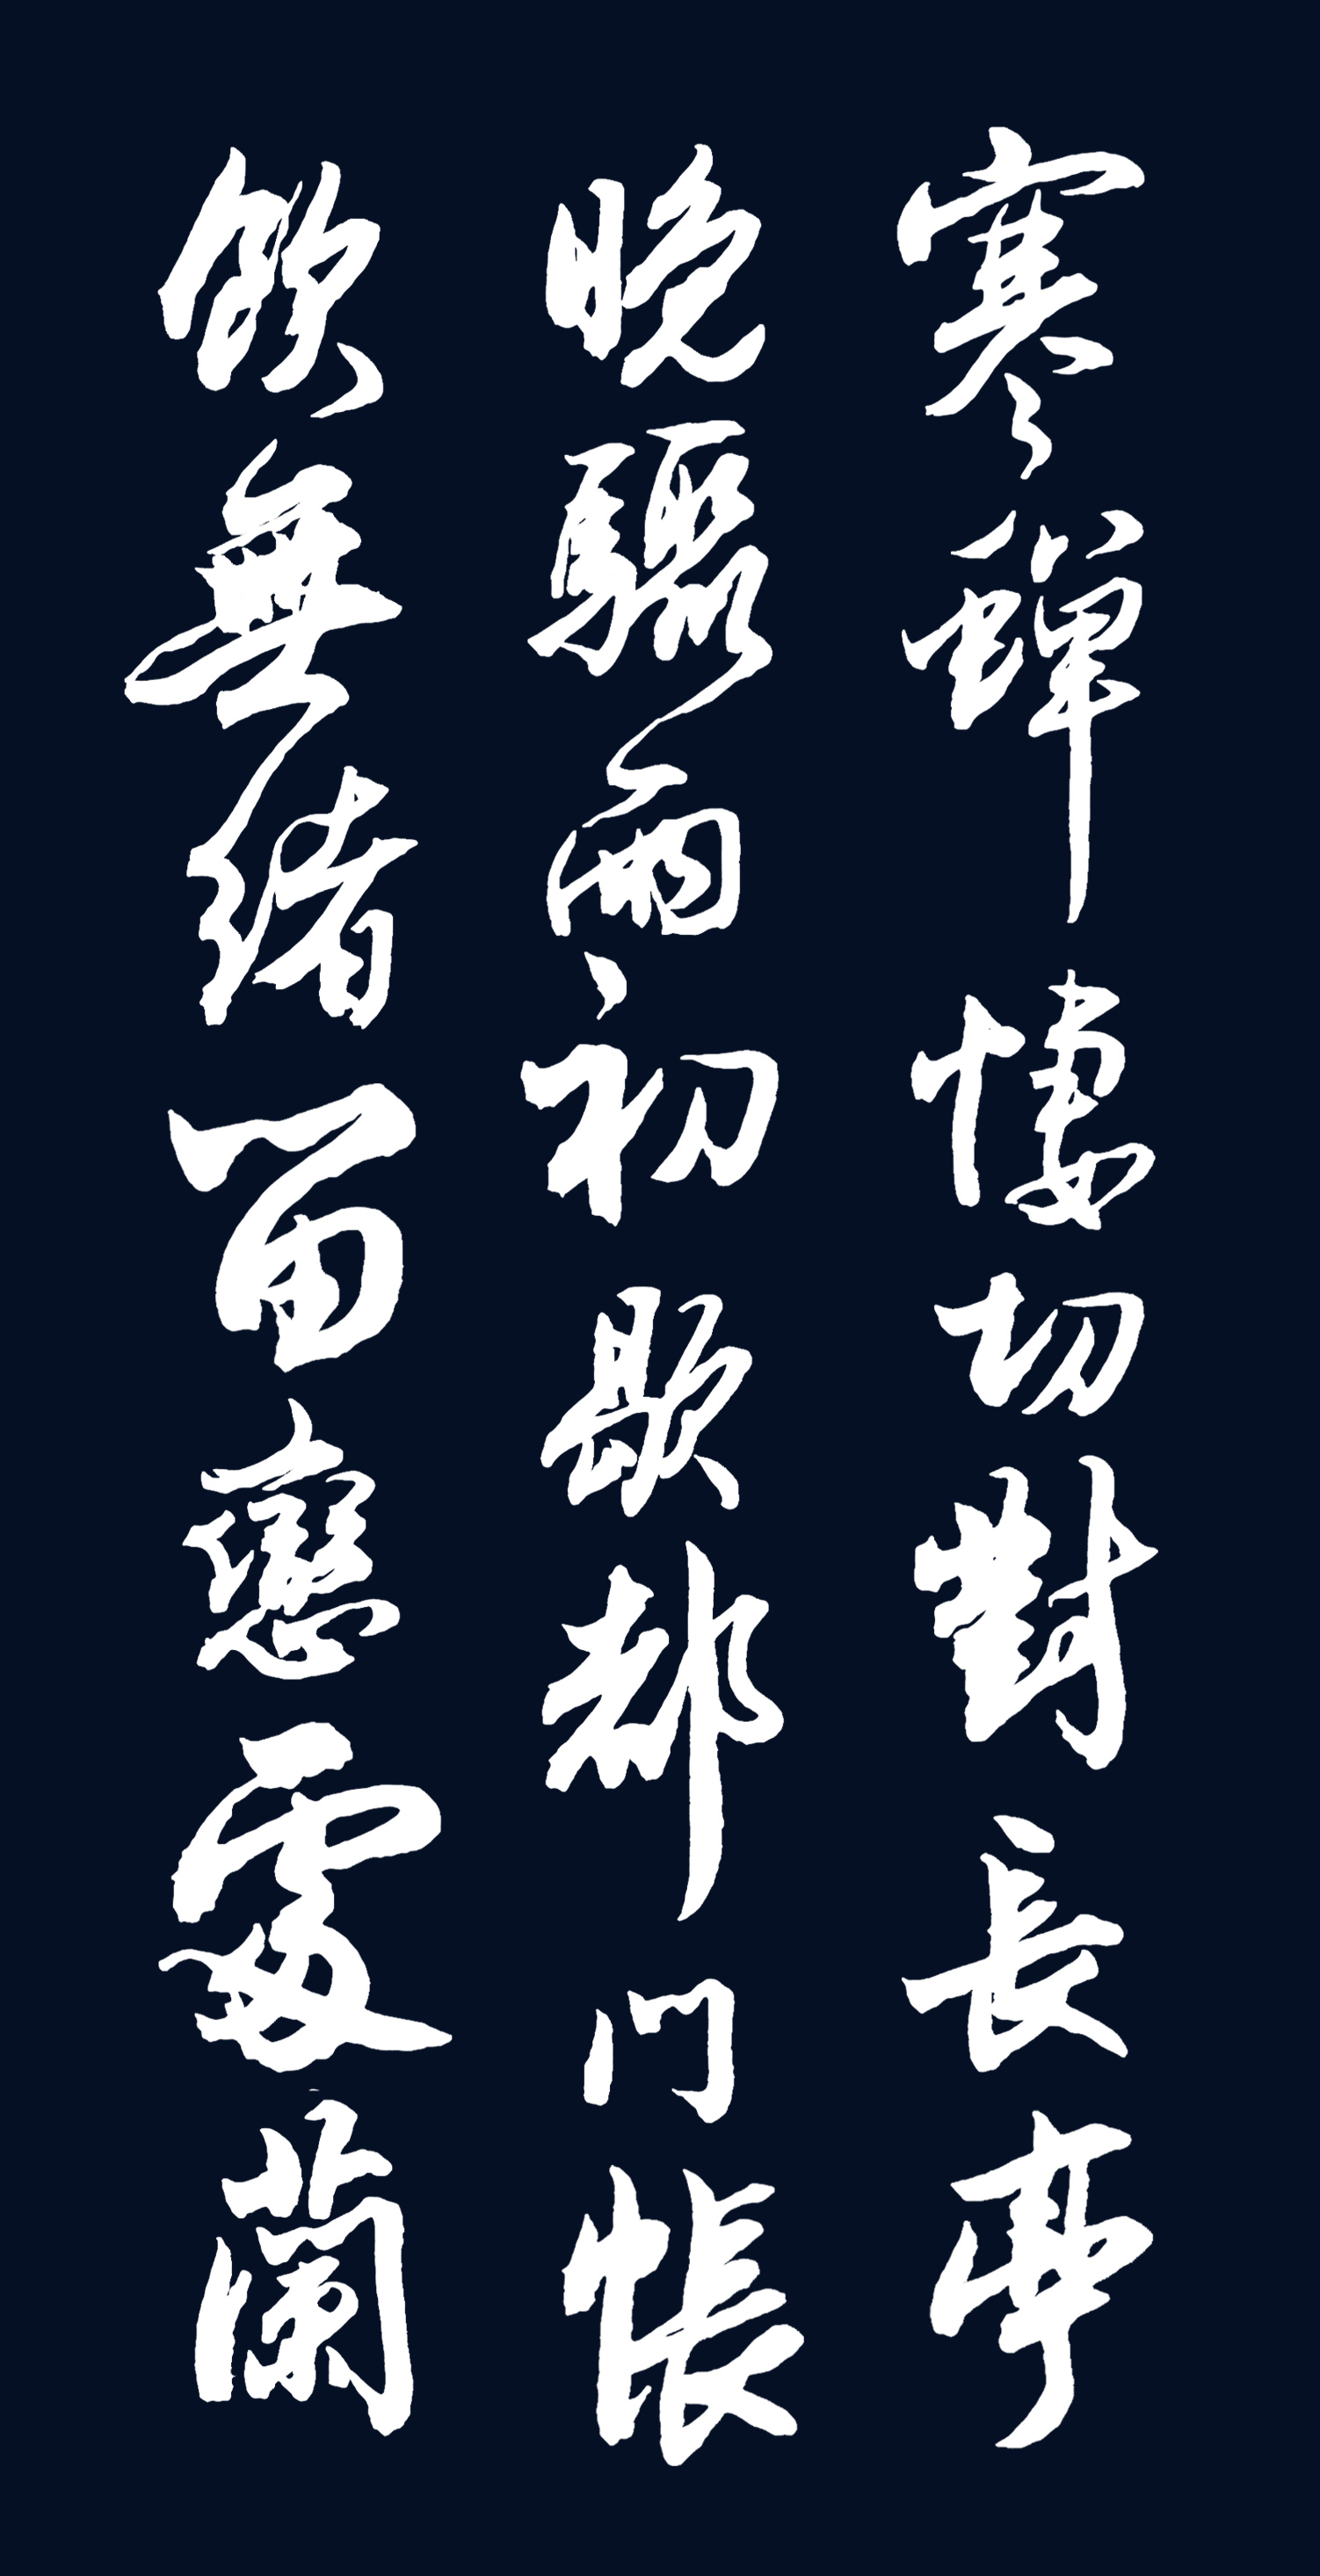 寒蟬悽切對長亭
晚驟雨初歇都門帳
飲無緒留戀處蘭